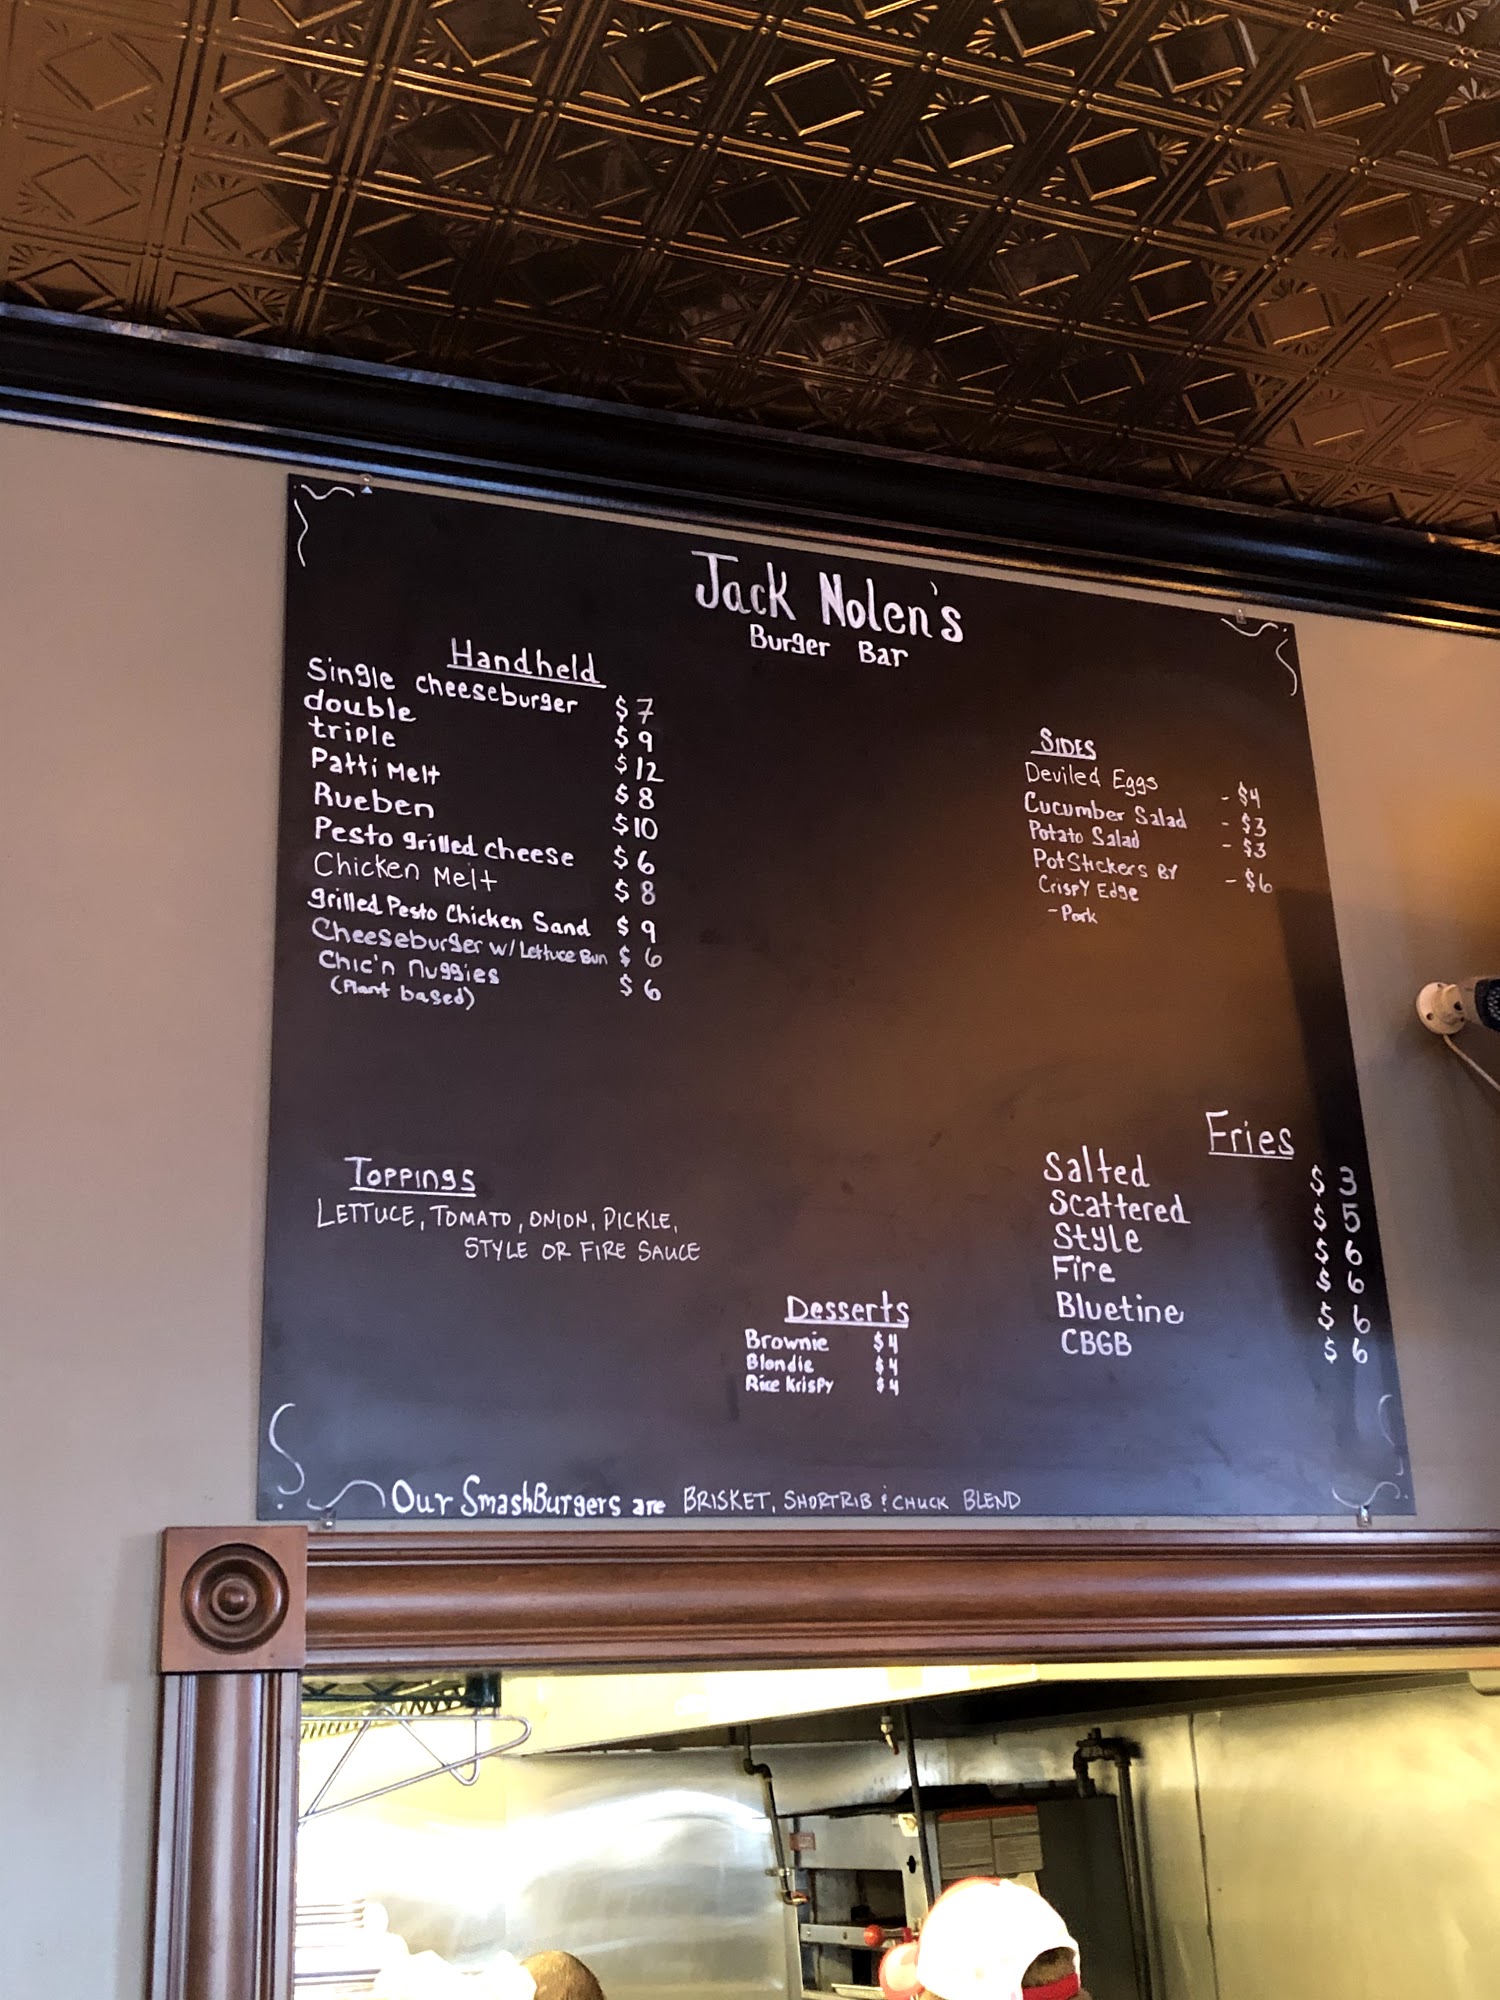 Jack Nolen's
Burger Bar
Handheld
Single cheeseburger $7
double $9
triple $12
Patti Melt $8
Rueben $10
Pesto grilled cheese $6
Chicken Melt $8
grilled Pesto Chicken Sand $9
Cheeseburger w/ Lettuce Bun $6
Chic'n nuggies $6
(Plant based)
SIDES
Deviled Eggs - $4
Cucumber Salad - $3
Potato Salad - $3
PotStickers BY - $6
Crispy Edge
- Pork
TOPPINGS
LETTUCE, TOMATO, ONION, PICKLE,
STYLE OR FIRE SAUCE
Fries
Salted $3
Scattered $5
Style $6
Fire $6
Bluetine $6
CBGB $6
Desserts
Brownie $4
Blondie $4
Rice Krispy $4
Our SmashBurgers are BRISKET, SHORTRIB & CHUCK BLEND